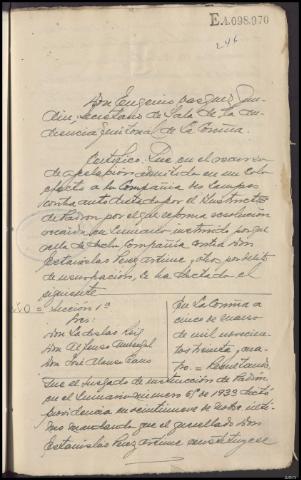 E 4.098.070
246
Don Eugenio Vazquez Gun-
din, Secretario de Sala de la Au-
diencia territorial de la Coruña.
Certifico: Que en el recurso
de apelacion admitido en un solo
efecto a la Compañia de
contra auto dictado por el Instructor
de Padron por el que reforma resolucion
recaida en sumario instruido por que-
rella de dicha Compañia contra Don
Estanislao Perez Artime y otros por delito
de usurpacion, se ha dictado el
siguiente
Seccion 1ª
Sres:
Don Ladislao Roig
Don Alfonso
Don José Alonso
En La Coruña a
cinco de marzo
de mil novecien-
tos treinta y cua-
tro. = Resultando
que el Juzgado de instruccion de Padron
en el sumario numero 61 de 1933 dictó
providencia en veintinueve de
mo mandando que el querellado Don
Estanislao Perez Artime constituyese